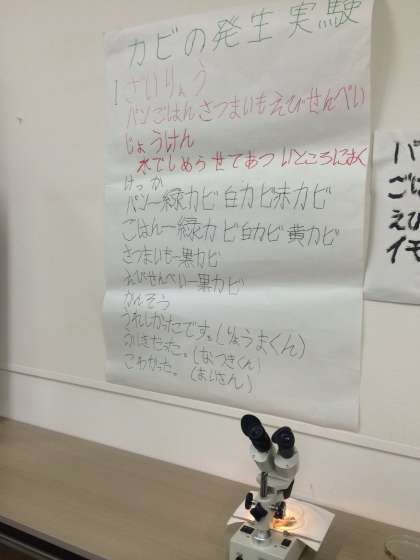 カビの発生実験
1 ざいりょう
パンごはんさつまいもえびせんべい
じょうけん
水でしめらせてあついところにおく
けっか
パンー緑カビ白カビ赤カビ
ごはんー緑カビ白カビ黄カビ
さつまいもー黒カビ
えびせんべいー黒カビ
かんそう
うれしかったです。(りょうまくん)
ふしぎだった。(なつきくん)
こわかった。
パ
ごは
えび
イモ